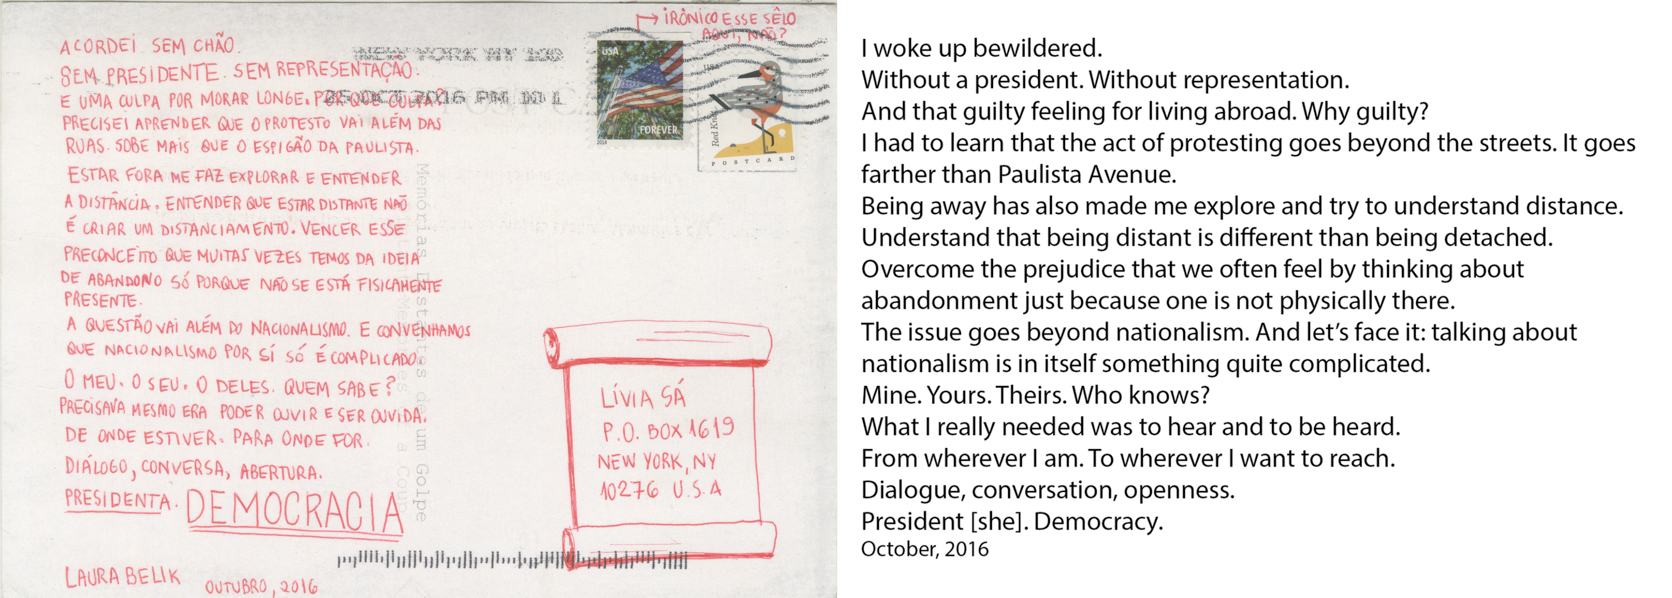 IRÔNICO ESSE SÊLO
AQUI, NÃO?
ACORDEI SEM CHÃO.
SEM PRESIDENTE. SEM REPRESENTAÇÃO.
E UMA CULPA POR MORAR LONGE. POR QUE CULPA?
PRECISEI APRENDER QUE O PROTESTO VAI ALÉM DAS
RUAS. SOBE MAIS QUE O ESPIGÃO DA PAULISTA.
ESTAR FORA ME FAZ EXPLORAR E ENTENDER
A DISTÂNCIA. ENTENDER QUE ESTAR DISTANTE NÃO
É CRIAR UM DISTANCIAMENTO. VENCER ESSE
PRECONCEITO QUE MUITAS VEZES TEMOS DA IDEIA
DE ABANDONO SÓ PORQUE NÃO SE ESTÁ FISICAMENTE
PRESENTE.
A QUESTÃO VAI ALÉM DO NACIONALISMO. E CONVENHAMOS
QUE NACIONALISMO POR SÍ SÓ É COMPLICADO.
O MEU. O SEU. O DELES. QUEM SABE?
PRECISAVA MESMO ERA PODER OUVIR E SER OUVIDA.
DE ONDE ESTIVER. PARA ONDE FOR.
DIÁLOGO, CONVERSA, ABERTURA.
PRESIDENTA. DEMOCRACIA
LAURA BELIK OUTUBRO, 2016
NEW YORK NY 100
05 OCT 2016 PM 10 L
USA
FOREVER
2014
USA
Red Knot
POSTCARD
Memórias Restantes de um Golpe
LÍVIA SÁ
P.O. BOX 1619
NEW YORK, NY
10276 U.S.A
I woke up bewildered.
Without a president. Without representation.
And that guilty feeling for living abroad. Why guilty?
I had to learn that the act of protesting goes beyond the streets. It goes
farther than Paulista Avenue.
Being away has also made me explore and try to understand distance.
Understand that being distant is different than being detached.
Overcome the prejudice that we often feel by thinking about
abandonment just because one is not physically there.
The issue goes beyond nationalism. And let's face it: talking about
nationalism is in itself something quite complicated.
Mine. Yours. Theirs. Who knows?
What I really needed was to hear and to be heard.
From wherever I am. To wherever I want to reach.
Dialogue, conversation, openness.
President [she]. Democracy.
October, 2016